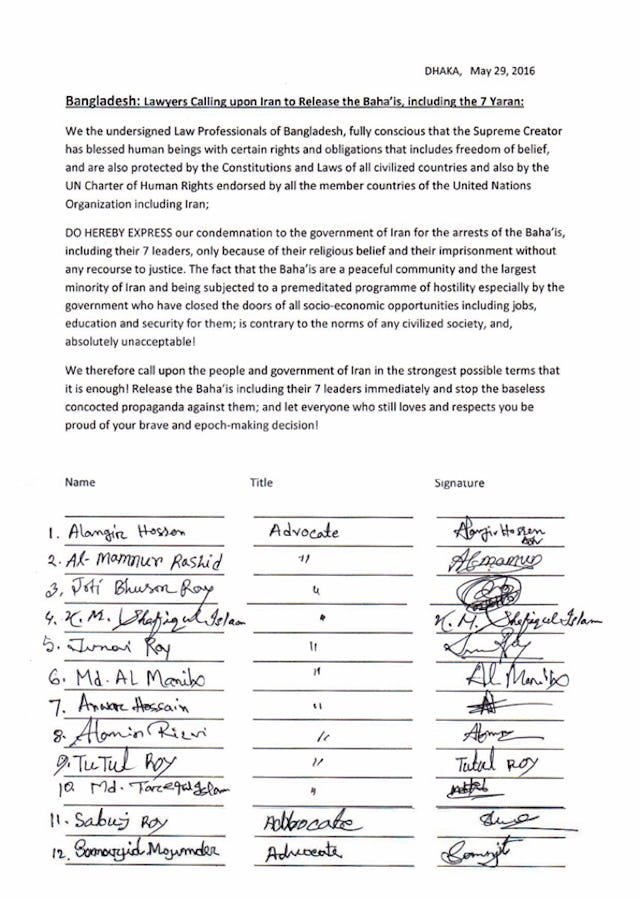 DHAKA, May 29, 2016
Bangladesh: Lawyers Calling upon Iran to Release the Baha'is, including the 7 Yaran:
We the undersigned Law Professionals of Bangladesh, fully conscious that the Supreme Creator
has blessed human beings with certain rights and obligations that includes freedom of belief,
and are also protected by the Constitutions and Laws of all civilized countries and also by the
UN Charter of Human Rights endorsed by all the member countries of the United Nations
Organization including Iran;
DO HEREBY EXPRESS our condemnation to the government of Iran for the arrests of the Baha'is,
including their 7 leaders, only because of their religious belief and their imprisonment without
any recourse to justice. The fact that the Baha'is are a peaceful community and the largest
minority of Iran and being subjected to a premeditated programme of hostility especially by the
government who have closed the doors of all socio-economic opportunities including jobs,
education and security for them; is contrary to the norms of any civilized society, and,
absolutely unacceptable!
We therefore call upon the people and government of Iran in the strongest possible terms that
it is enough! Release the Baha'is including their 7 leaders immediately and stop the baseless
concocted propaganda against them; and let everyone who still loves and respects you be
proud of your brave and epoch-making decision!
Name Title Signature
1. Alangir Hossen Advocate Alangir Hossen
2. Al-Mamnur Rashid "
3. Joti Bhuson Roy "
4. K. M. Shafiqul Islam " K. M. Shefiqul Islam
5. Roy "
6. Md. AL Manibo " Al Manibo
7. Anwar Hossain "
8. Alamin Rizvi "
9. TuTul ROY " Tutul ROY
10. Md. Islam "
11. Sabuj Roy Adbocate
12. Mojumder Advocate